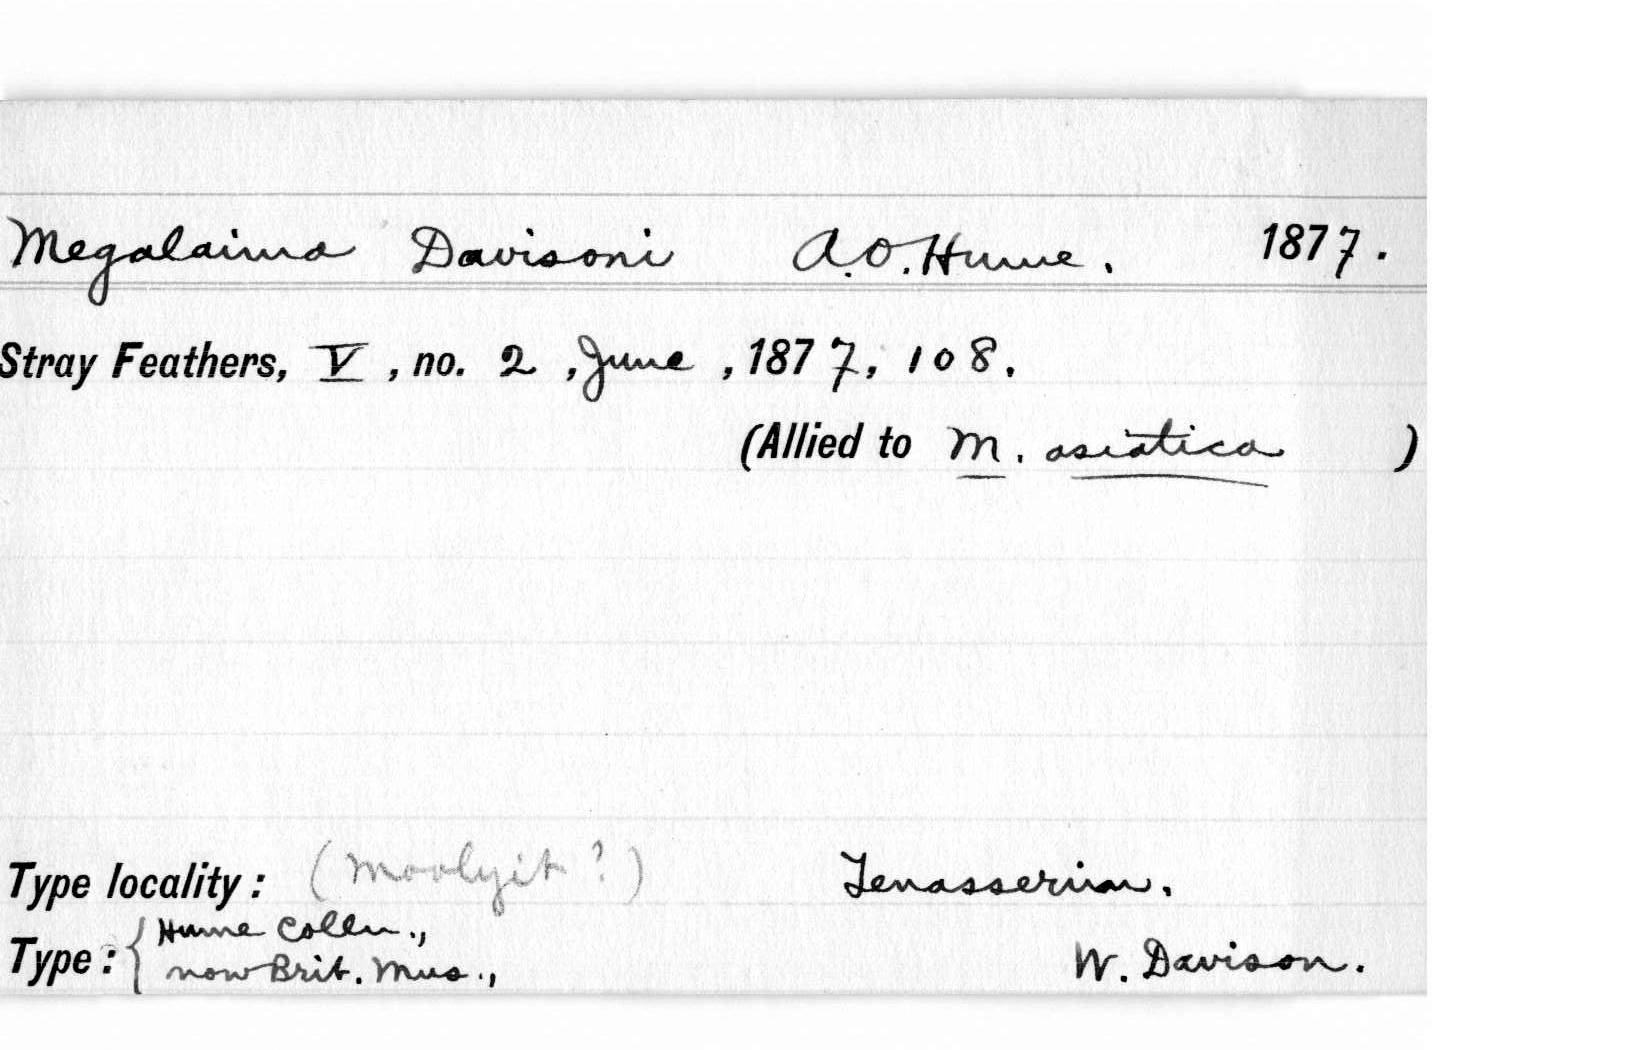 Megalaima Davisoni A.O. Hume. 1877.
Stray Feathers, V, no. 2, June, 1877, 108.
(Allied to M. asiatica )
Type locality: (Moolyit?) Tenasserim.
Type: { Hume Colln.,
now Brit. Mus., W. Davison.